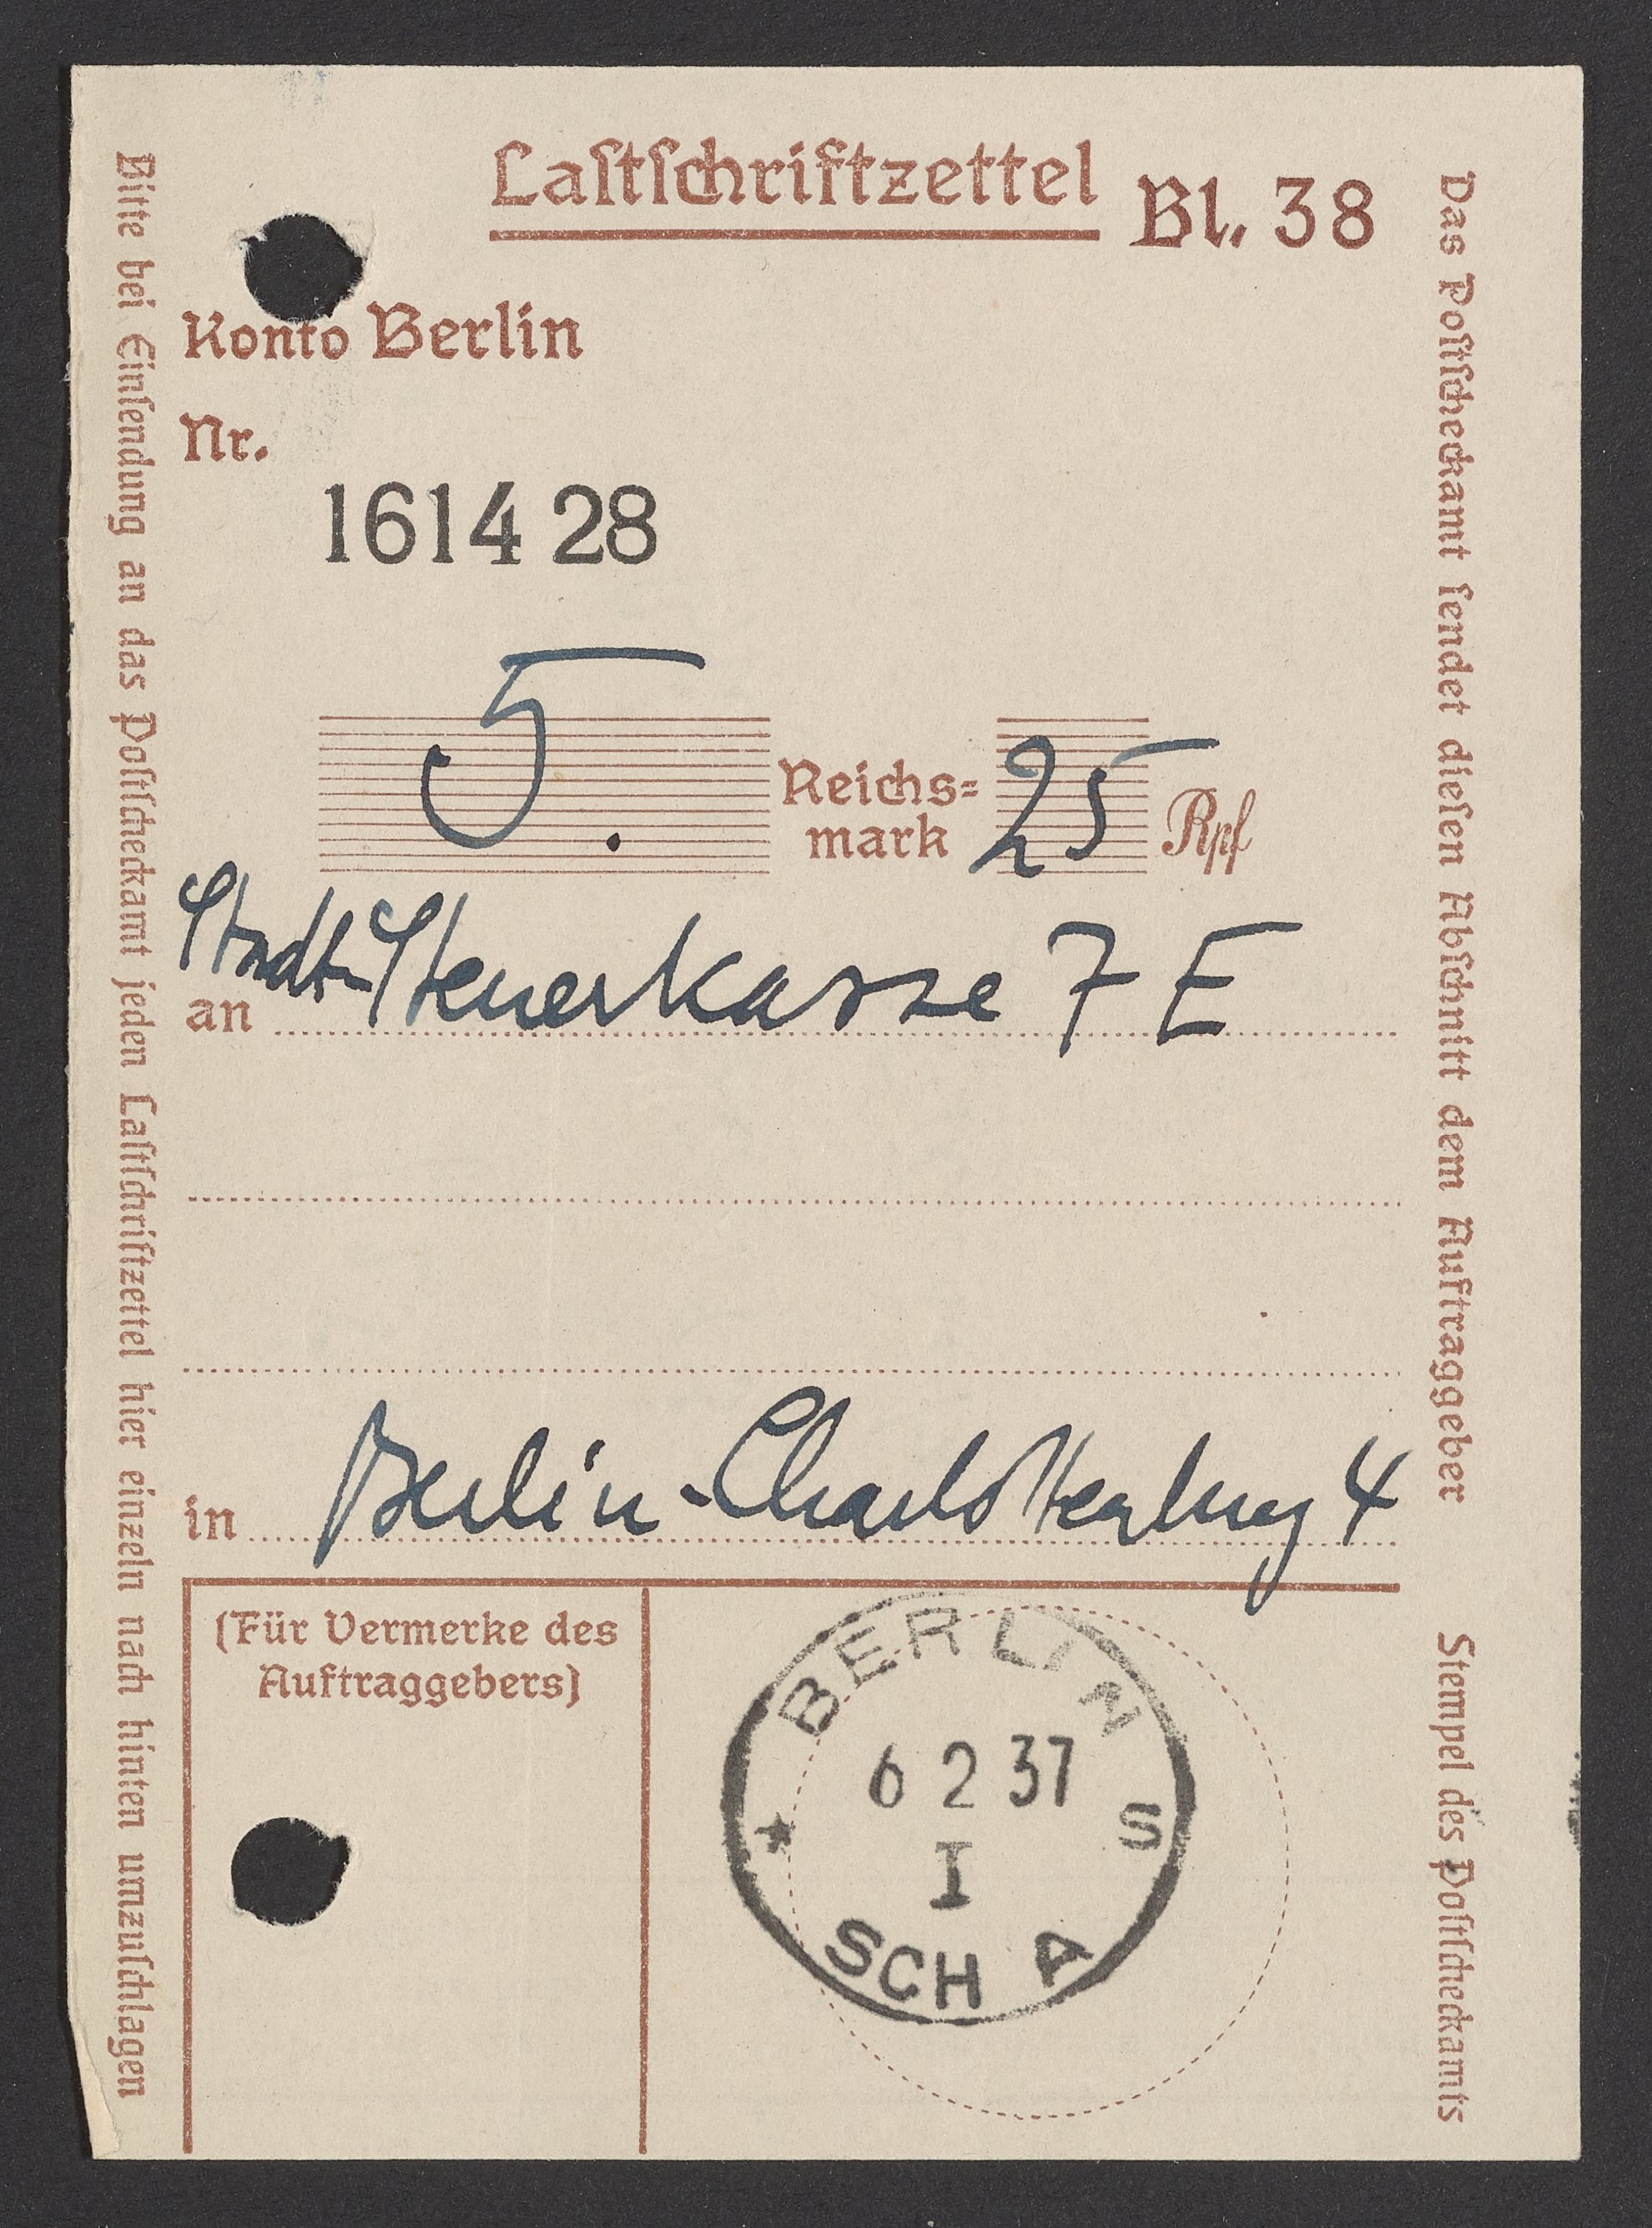 Laſtſchriftzettel
Bl. 38
Konto Berlin
Nr.
1614 28
5. Reichs=
mark 25 Rpf
an Stadt-Steuerkasse 7 E
in Berlin-Charlottenburg 4
(Für Vermerke des
Auftraggebers)
BERLIN
6 2 37
S
I
SCH A
Bitte bei Einſendung an das Poſtſcheckamt jeden Laſtſchriftzettel hier einzeln nach hinten umzuſchlagen
Das Poſtſcheckamt ſendet dieſen Abſchnitt dem Auftraggeber
Stempel des Poſtſcheckamts